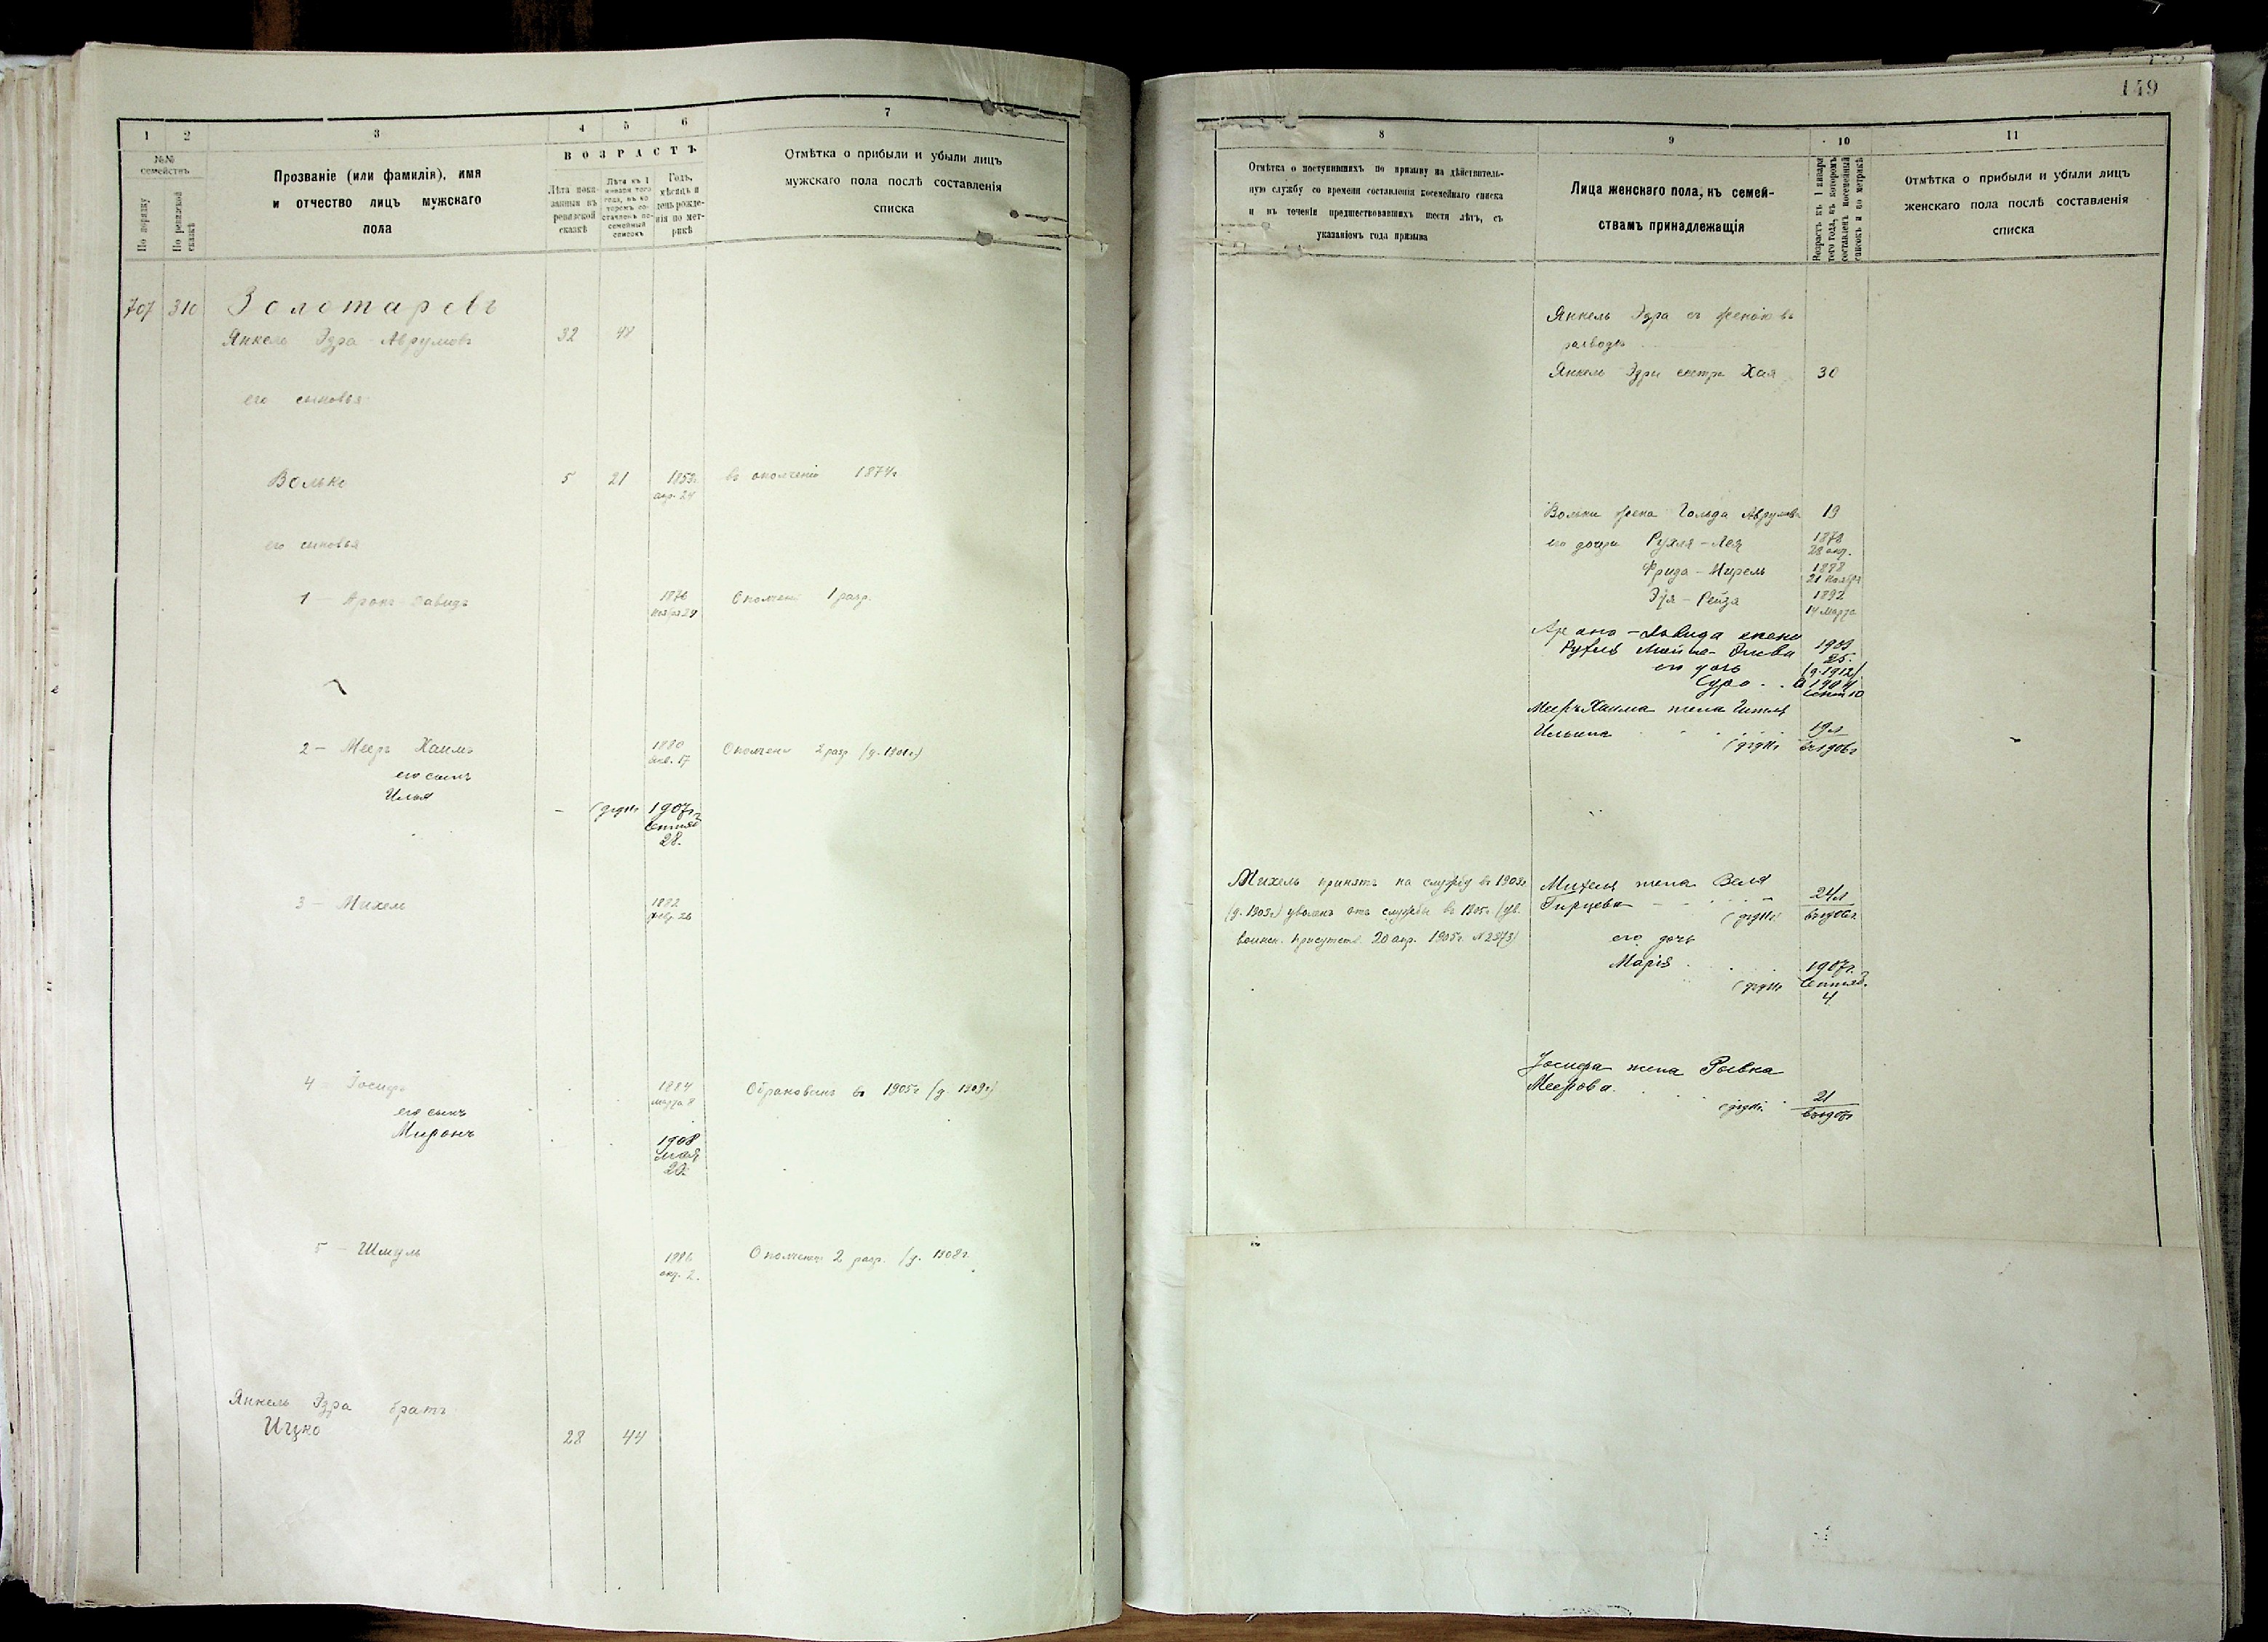 149
1 2 3 4 5 6 7
№№ семействъ
По порядку
По ревизской сказкѣ
Прозваніе (или фамилія), имя
и отчество лицъ мужскаго
пола
ВОЗРАСТЪ
Лѣта пока-
занныя въ
ревизской
сказкѣ
Лѣта къ 1
января того
года, въ ко-
торомъ со-
ставленъ по-
семейный
списокъ
Годъ,
мѣсяцъ и
день рожде-
нія по мет-
рикѣ
Отмѣтка о прибыли и убыли лицъ
мужскаго пола послѣ составленія
списка
707 310 Золотаревъ
Янкель Эзра Аврумовъ 32 48
его сыновья
Волько 5 21 1853г. апр. 24 въ ополченіи 1874г
его сыновья
1 — Аронъ-Давидъ 1876 Ноябра 29 Ополчен 1 разр.
2 — Мееръ Хаимъ 1880 17 Ополчени 2 разр (д. 1901г)
его сынъ
Илья
1907г. Сентяб 28.
3 — Михель 1882 февр. 26
4 Іосифъ 1884 марта 8 Обракованъ въ 1905г (д. 1909г)
его сынъ
Миронъ 1908 мая 20.
5 — Шмуль 1886 2. Ополченіе 2 разр. (д. 1908г.
Янкель Эзра братъ
Ицко 28 44
8 9 10 11
Отмѣтка о поступившихъ по призыву на дѣйствитель-
ную службу со времени составленія посемейнаго списка
и въ теченіи предшествовавшихъ шести лѣтъ, съ
указаніемъ года призыва
Лица женскаго пола, къ семей-
ствамъ принадлежащія
Возрастъ къ 1 января
того года, въ которомъ
составленъ посемейный
списокъ и по метрикѣ
Отмѣтка о прибыли и убыли лицъ
женскаго пола послѣ составленія
списка
Янкель Эзра съ женою въ
разводѣ
Янкель Эзри сестра Хая 30
Вольки жена Гольда Аврумова 19
его дочери Рухля-Лея 1878 28
Фрида-Мирель 1888 21 Ноября
Эйя-Рейза 1892 14 марта
Ароно-Давида жена
Рухля 1909 25.
его дочь (д. 1912)
Сура 1904 Сент 10
Мееръ Хаима жена Гитля
Ильина 19л
Михель принятъ на службу въ 1903г Михеля жена Бейля
(д. 1903г) уволенъ отъ службы въ 1905г (ув. Гирцева 24л
воинск. присутств. 20 апр. 1905г. № 2873)
его дочь
Марія 1907г. Сентяб. 4
Іосифа жена Ривка
Меерова 21